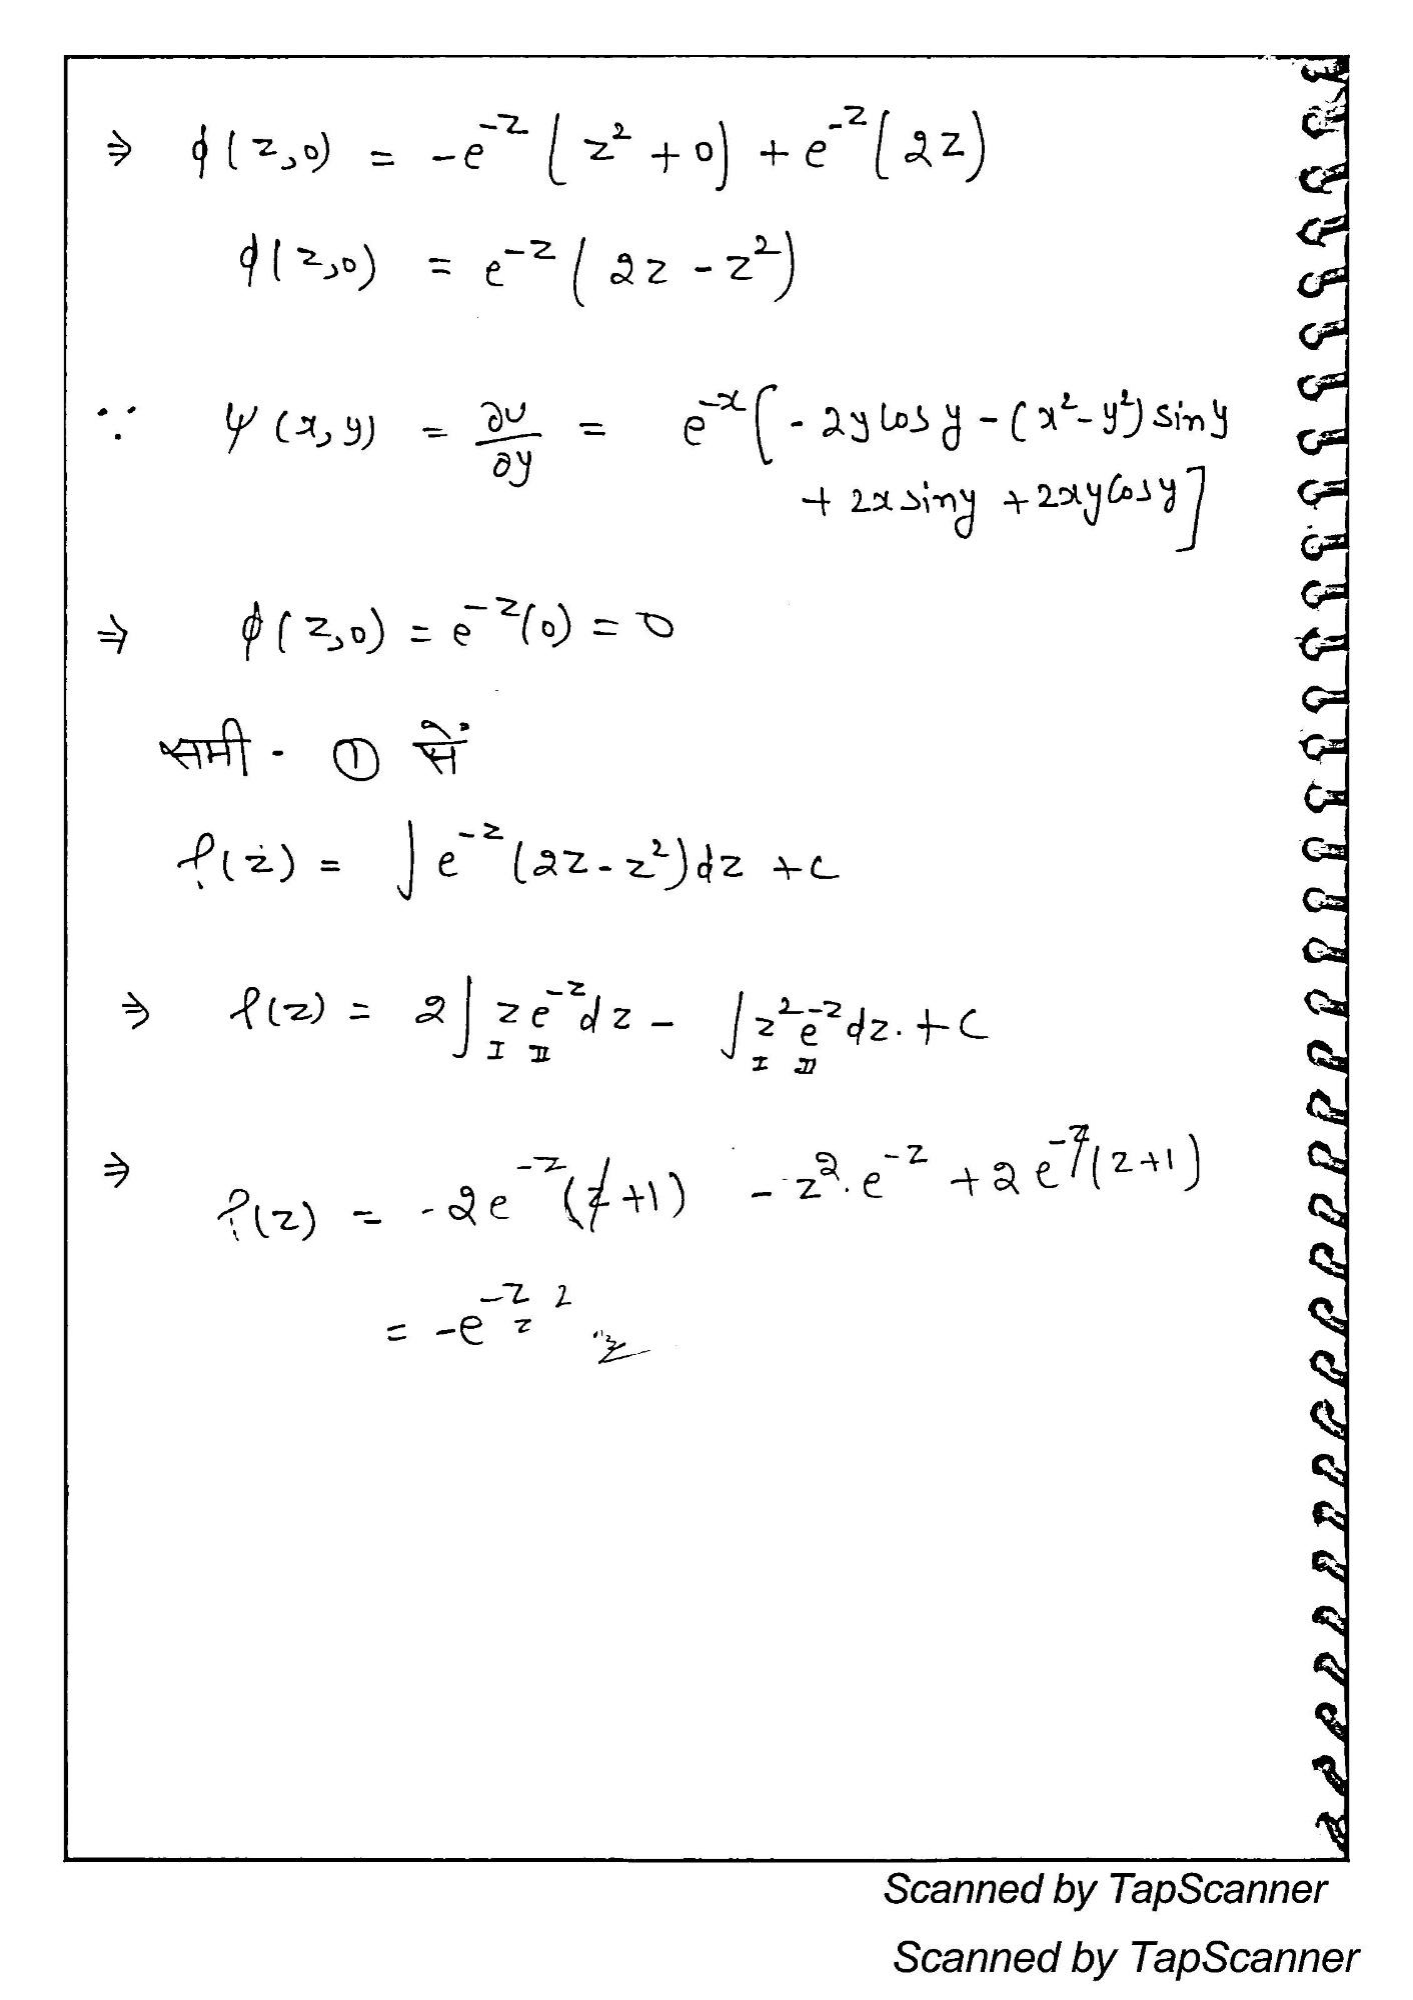 ⇒ ϕ(z,0) = -e^{-z} (z² + 0) + e^{-z} (2z)
ϕ(z,0) = e^{-z} (2z - z²)
∵ ψ(x,y) = ∂u/∂y = e^{-x} [-2y cos y - (x² - y²) sin y
+ 2x sin y + 2xy cos y]
⇒ ϕ(z,0) = e^{-z}(0) = 0
समी - ① सें
f(z) = ∫ e^{-z} (2z - z²) dz + c
⇒ f(z) = 2∫ z e^{-z} dz - ∫ z² e^{-z} dz. + c
I II I II
⇒ f(z) = -2e^{-z} (z+1) - z². e^{-z} + 2e^{-z} (z+1)
= -e^{-z} z²
Scanned by TapScanner
Scanned by TapScanner